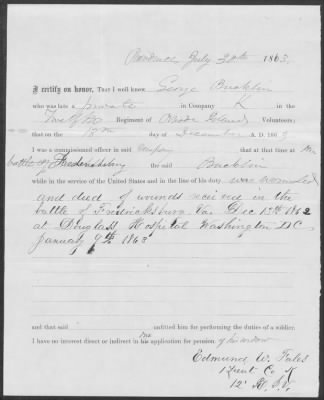 Providence July 30th 1863.
I certify on honor, That I well know George Bucklin
who was late a private in Company K in the
Twelfth Regiment of Rhode Island Volunteers;
that on the 13th day of December A. D. 1862
I was a commissioned officer in said Company that at that time at the
battle of Fredericksburg the said Bucklin
while in the service of the United States and in the line of his duty was wounded
and died of wounds received in the
battle of Fredricksburg Va. Dec 13th 1862
at Douglass Hospital Washington DC
January 9th 1863
and that said unfitted him for performing the duties of a soldier.
I have no interest direct or indirect in this application for pension of the widow
Edmund W. Fales
1 Lieut Co K
12' R. I. V.